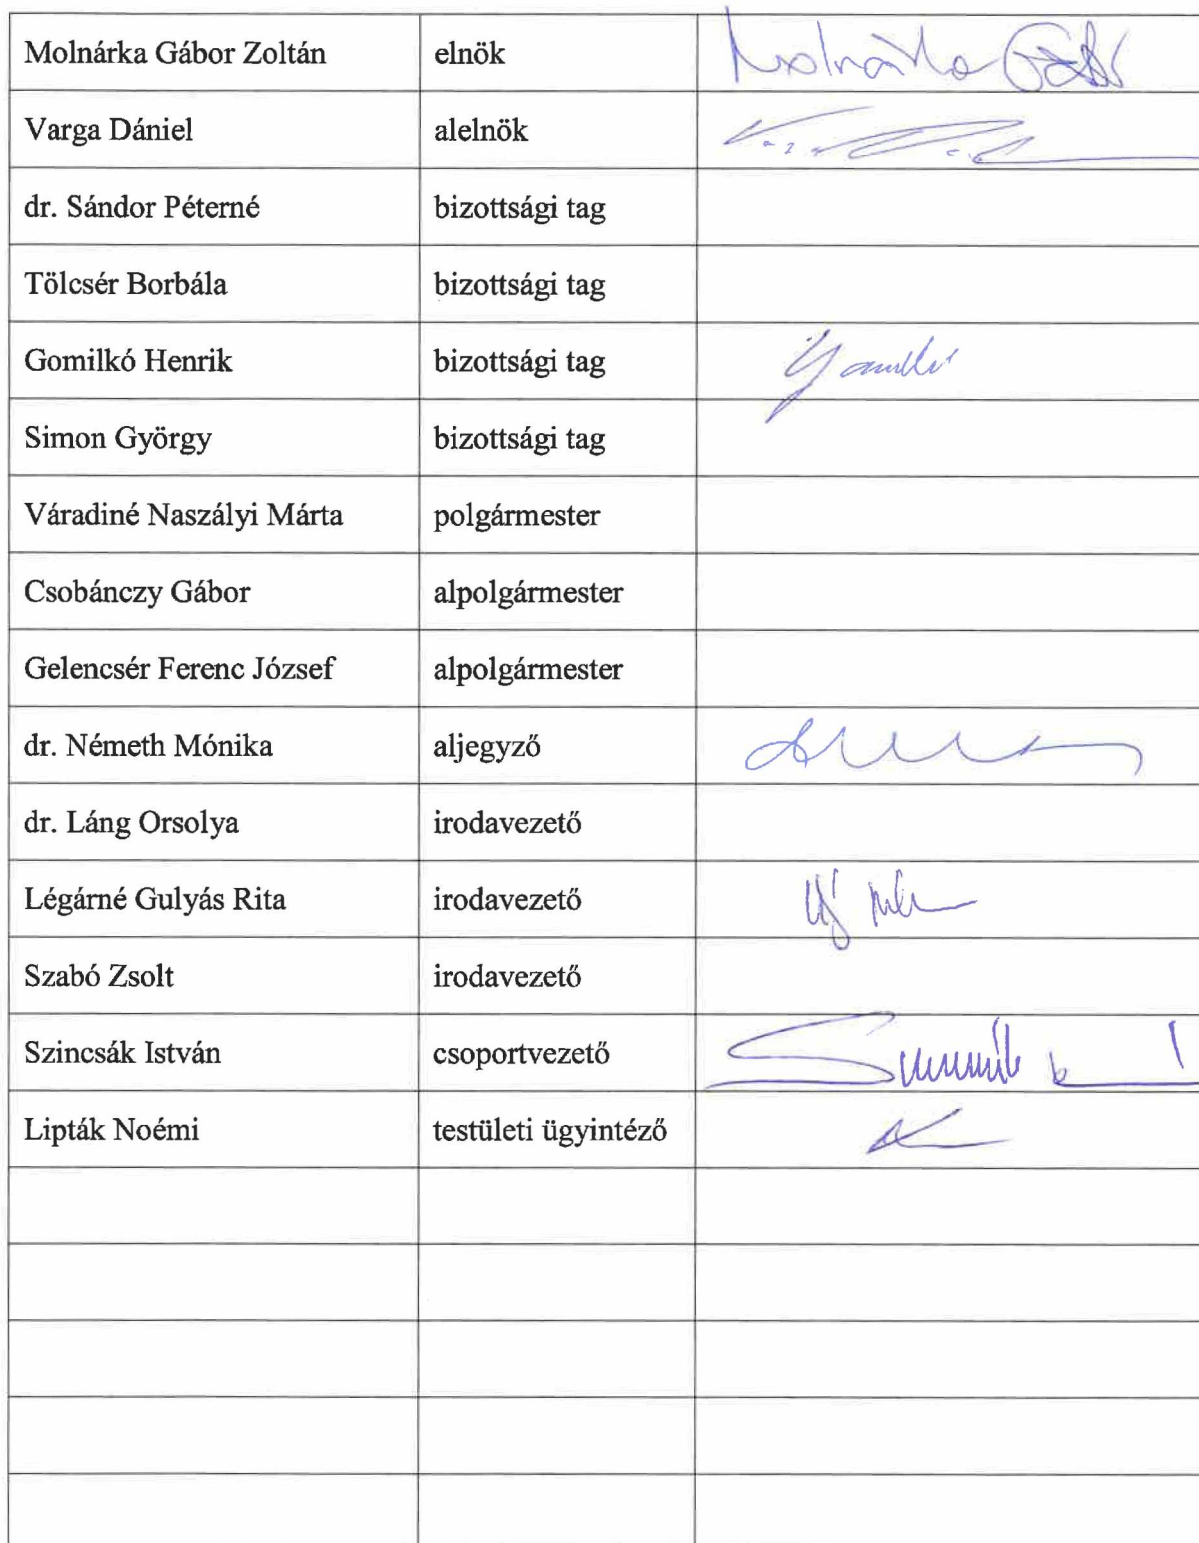 Molnárka Gábor Zoltán elnök Molnárka Gábor
Varga Dániel alelnök
dr. Sándor Péterné bizottsági tag
Tölcsér Borbála bizottsági tag
Gomilkó Henrik bizottsági tag
Simon György bizottsági tag
Váradiné Naszályi Márta polgármester
Csobánczy Gábor alpolgármester
Gelencsér Ferenc József alpolgármester
dr. Németh Mónika aljegyző
dr. Láng Orsolya irodavezető
Légárné Gulyás Rita irodavezető
Szabó Zsolt irodavezető
Szincsák István csoportvezető
Lipták Noémi testületi ügyintéző